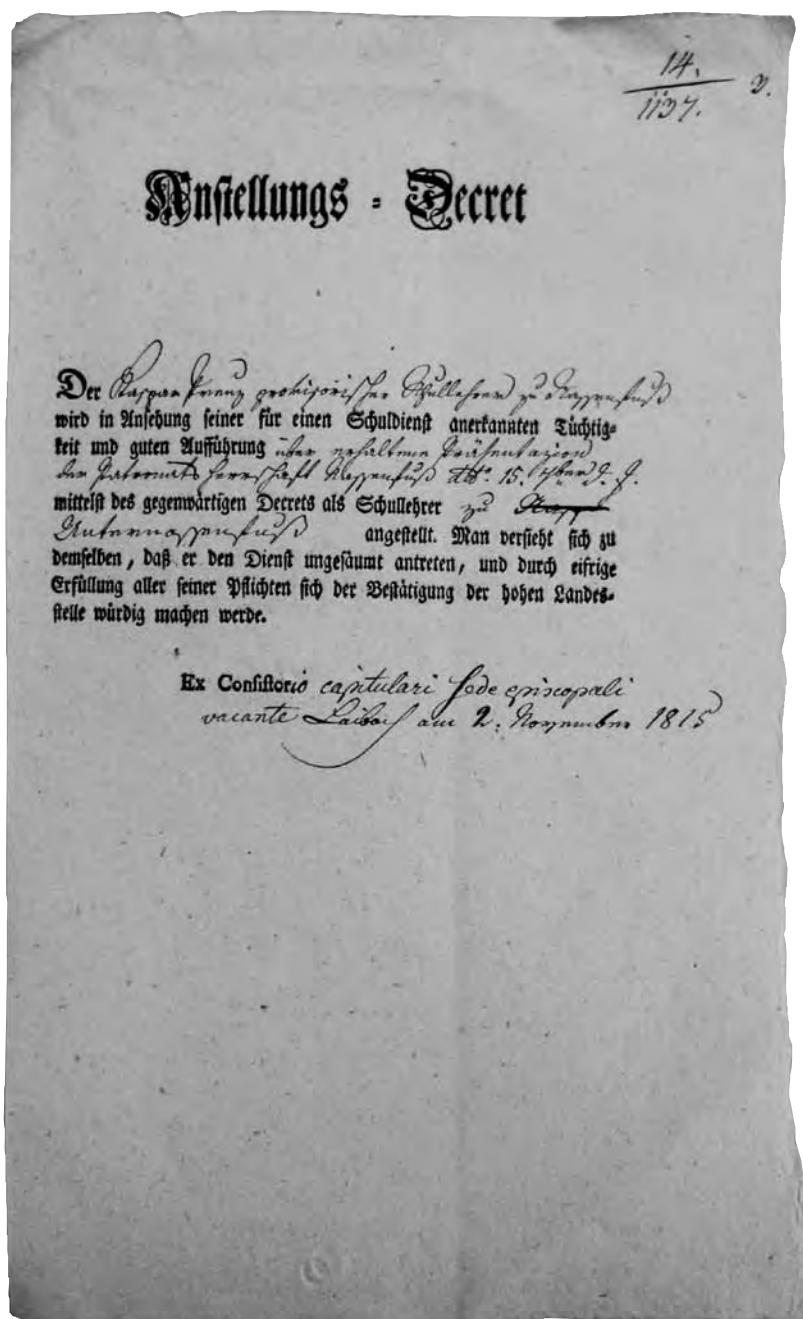 14.
1137.
Anstellungs = Decret
Der Kaspar Prenz provisorischer Schullehrer zu Nassenfuß
wird in Ansehung seiner für einen Schuldienst anerkannten Tüchtig=
keit und guten Aufführung über erhaltene Präsentazion
der Patronats Herrschaft Nassenfuß dto. 15. 7ber d. J.
mittelst des gegenwärtigen Decrets als Schullehrer zu
Unternassenfuß angestellt. Man versieht sich zu
demselben, daß er den Dienst ungesäumt antreten, und durch eifrige
Erfüllung aller seiner Pflichten sich der Bestätigung der hohen Landes=
stelle würdig machen werde.
Ex Consistorio capitulari sede episcopali
vacante Laibach am 2. November 1815